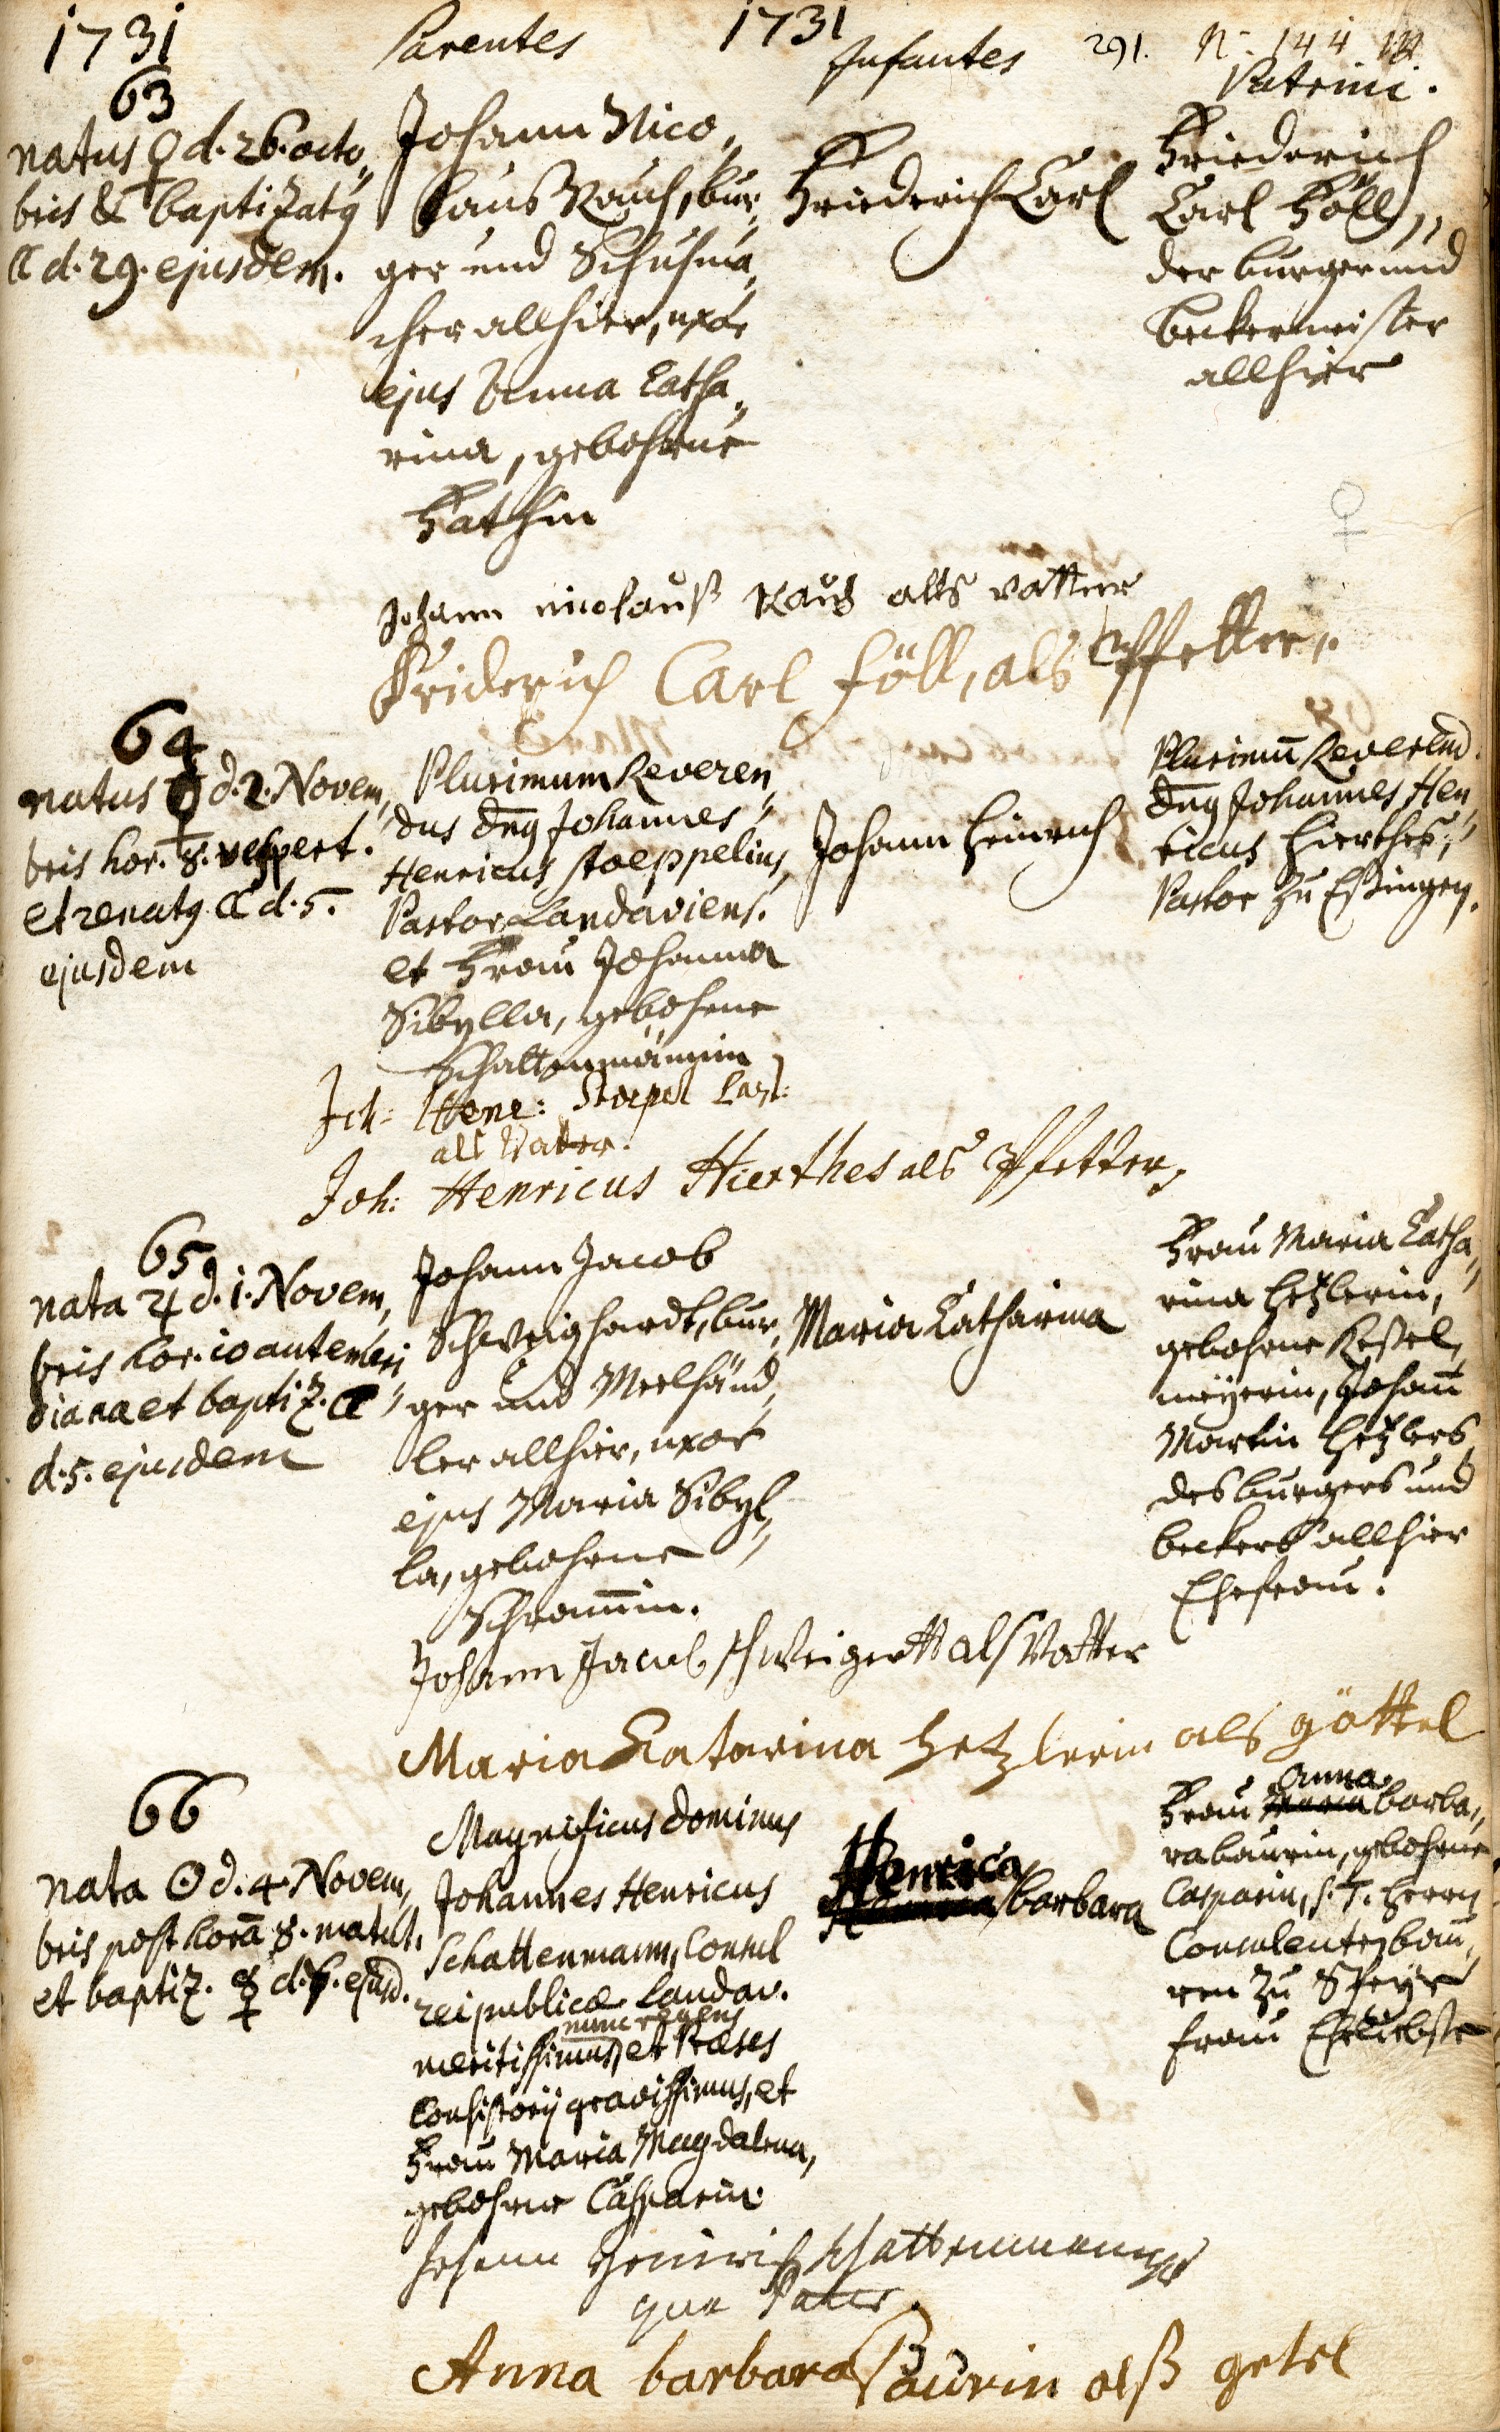 1731 Parentes 1731 Infantes 291. N. 144
Patrini.
63
natus ♀ d. 26. octo„
bris & baptizatq
☾ d. 29. ejusdem.
Johann Nico„
laus Rauch, bur„
ger und Schuhma„
cher allhier, uxor
ejus Anna Catha„
rina, gebohrne
Hathin
Friederich Carl
Friederich
Carl Föll,
der burger und
beckermeister
allhier
♀
Johann nicolauß Rauch alls vatter
Friderich Carl Föll, als Pfetter.
64
natus ♀ d. 2. Novem„
bris hor. 8. vespert.
et renatq ☾ d. 5.
ejusdem
Plurimum Reveren„
dus dn̄q Johannes
Henricus Stoeppelius,
Pastor Landaviens.
et Frau Johanna
Sibylla, gebohrne
Schattenmännin
Johann Heinrich
Plurimu̅ Reverend.
dn̄q Johannes Hen„
ricus Hierthes,
Pastor zu Eßingen.
Joh: Henr: Stoepel Past:
als Vatter.
Joh: Henricus Hierthes als Pfetter,
65
nata ♃ d. 1. Novem„
bris hor. 10 antemeri„
diana et baptiz. ☾
d. 5. ejusdem
Johann Jacob
Schweighardt, bur„
ger und Meelhänd„
ler allhier, uxor
ejus Maria Sibyl„
la, gebohrne
Schram̅in.
Maria Catharina
Frau Maria Catha„
rina Hetzlerin,
gebohrne Keßel„
meÿerin, Johan̅
Martin Hetzlers
des burgers und
beckers allhier
Ehefrau.
Johann Jacob schweigertt als Vatter
Maria Katarina Hetzlerin als göttel
66
nata ☉ d. 4. Novem„
bris post horā 8. matut.
et baptiz. ☿ d. 7. ejusd.
Magnificus dominus
Johannes Henricus
Schattenmann, Consul
reipublicæ Landav.
nunc regens
meritissimus, et Præses
Consistorij gravissimus, et
Frau Maria Magdalena,
gebohrne Casparin.
Henrica
barbara
Anna
Frau Maria barba„
ra baurin, gebohrne
Casparin, S. T. Herrn
Consulenten bau„
ren zu Speyer
Frau Eheliebste
Johann Heinrich Schattenmann
qua Pater.
Anna barbara Baurin alß getel